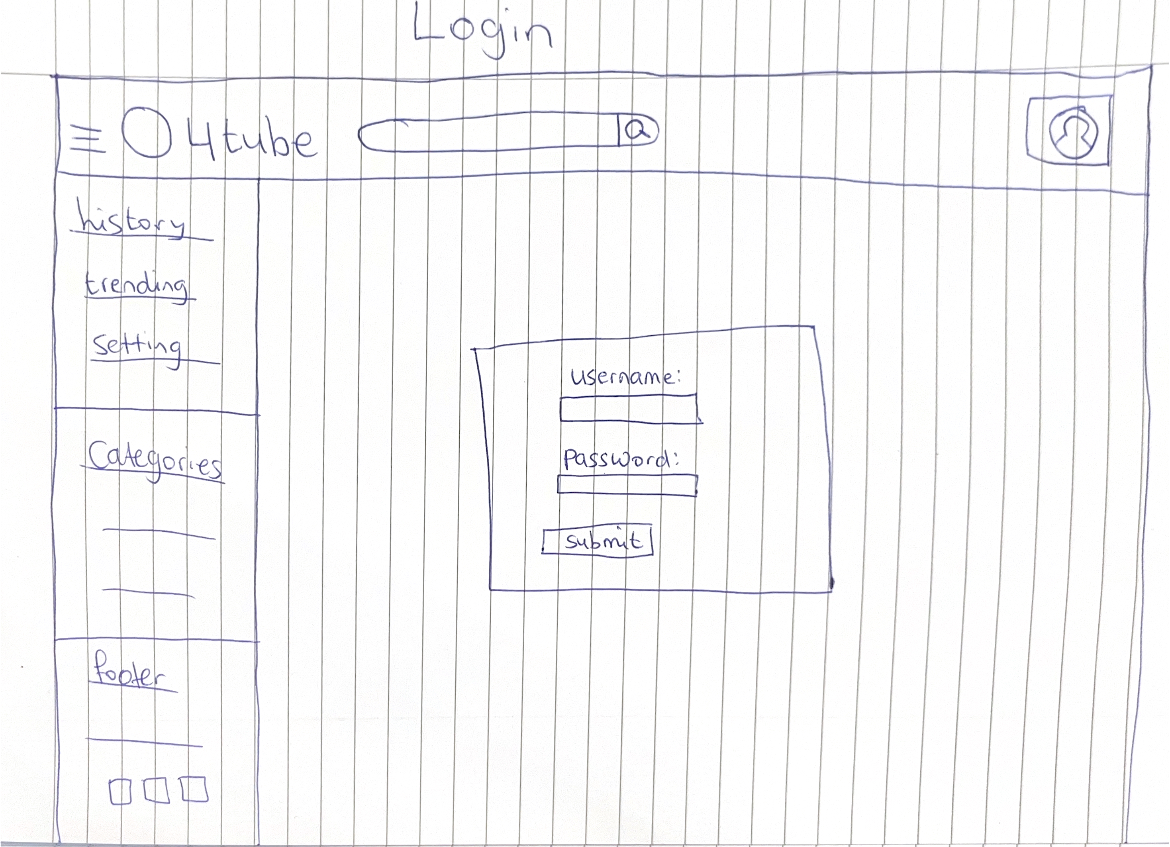 Login
4tube
history
trending
setting
Categories
footer
username:
password:
submit